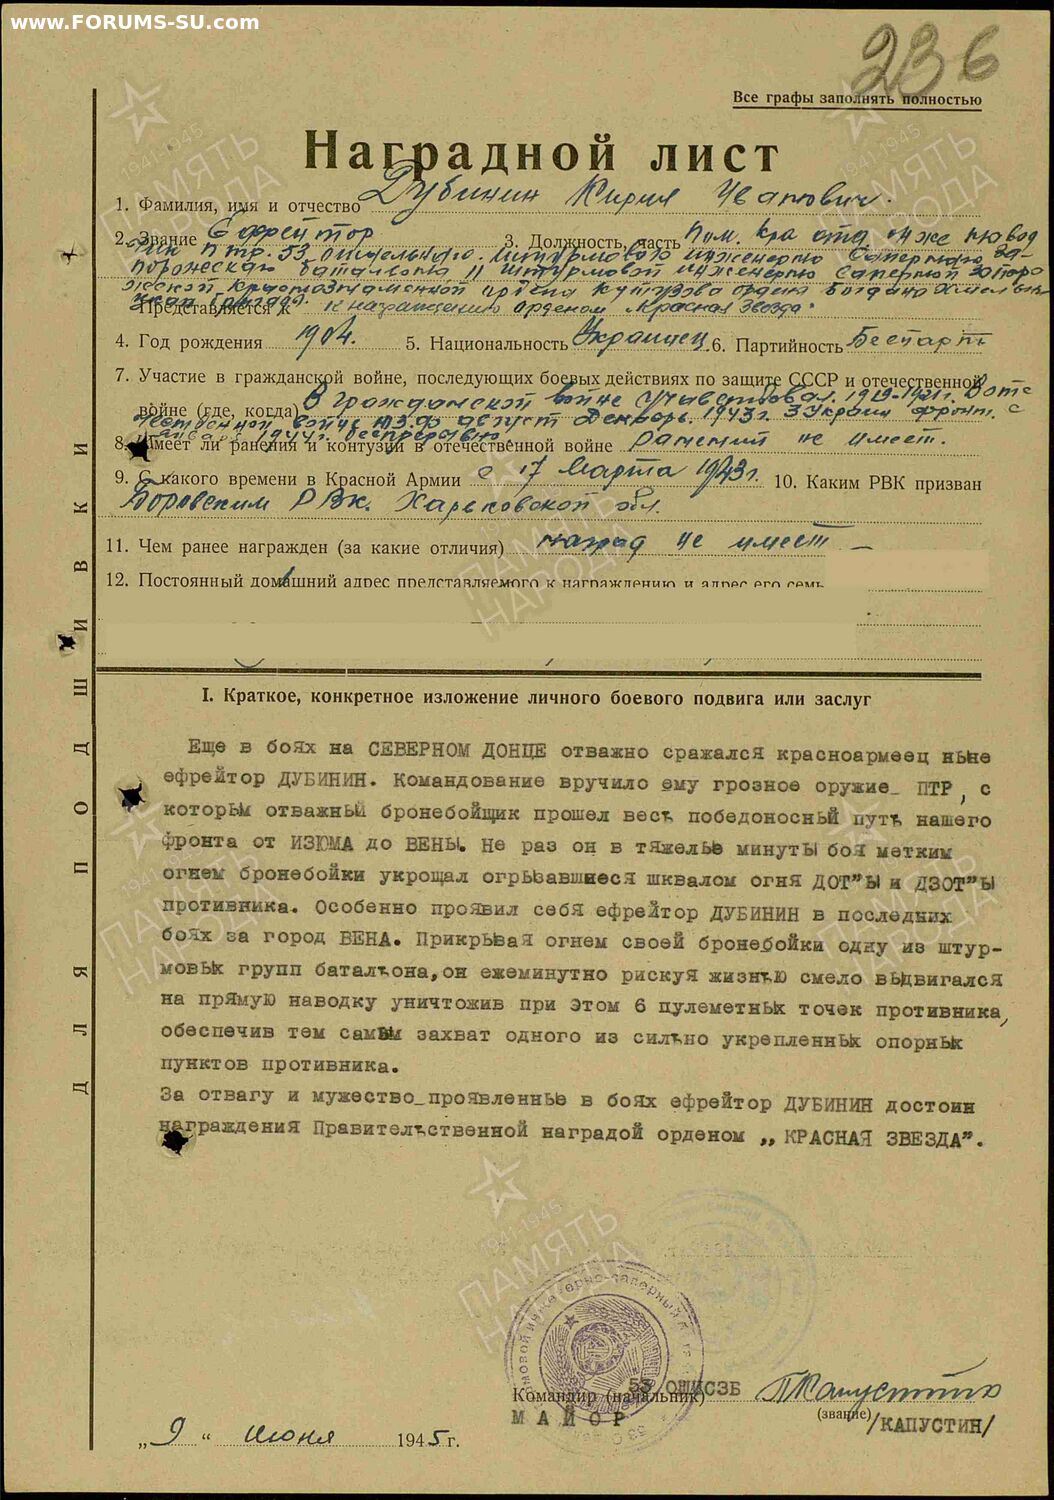 www.FORUMS-SU.com
236
Все графы заполнять полностью
Наградной лист
1. Фамилия, имя и отчество Дубинин Кирил Иванович.
2. Звание Ефрейтор 3. Должность, часть Пом. к-ра отд. он же
птр. 53 отдельного Штурмового инженерно саперного За-
порожского батальона 11 штурмовой инженерно саперной Запоро
жской Краснознаменной ордена Кутузова ордена Богдана Хмельни
цкая бригада.
Представляется к к награждению орденом "Красная Звезда".
4. Год рождения 1904. 5. Национальность Украинец 6. Партийность Беспарт
7. Участие в гражданской войне, последующих боевых действиях по защите СССР и отечественной
войне (где, когда) В Гражданской войне участвовал. 1919-1921г. В оте
чественной войне август Декабрь 1943г. 3 Украин фронт. с
января 1944г. беспрерывно.
8. Имеет ли ранения и контузии в отечественной войне ранений не имеет.
9. С какого времени в Красной Армии с 17 Марта 1943г. 10. Каким РВК призван
Боровским РВК. Харьковской обл.
11. Чем ранее награжден (за какие отличия) наград не имеет —
12. Постоянный домашний адрес представляемого к награждению и адрес его семь
I. Краткое, конкретное изложение личного боевого подвига или заслуг
Еще в боях на СЕВЕРНОМ ДОНЦЕ отважно сражался красноармеец ныне
ефрейтор ДУБИНИН. Командование вручило ему грозное оружие_ ПТР, с
которым отважный бронебойщик прошел весь победоносный путь нашего
фронта от ИЗЮМА до ВЕНЫ. Не раз он в тяжелые минуты боя метким
огнем бронебойки укрощал огрызавшиеся шквалом огня ДОТ"ы и ДЗОТ"ы
противника. Особенно проявил себя ефрейтор ДУБИНИН в последних
боях за город ВЕНА. Прикрывая огнем своей бронебойки одну из штур-
мовых групп баталъона, он ежеминутно рискуя жизнью смело выдвигался
на прямую наводку уничтожив при этом 6 пулеметных точек противника,
обеспечив тем самым захват одного из сильно укрепленных опорных
пунктов противника.
За отвагу и мужество_проявленные в боях ефрейтор ДУБИНИН достоин
награждения Правительственной наградой орденом „КРАСНАЯ ЗВЕЗДА".
Командир (начальник) 53 ОШИСЗБ
МАЙОР (звание) /КАПУСТИН/
„9" июня 1945 г.
ДЛЯ ПОДШИВКИ
1941-1945
ПАМЯТЬ
НАРОДА